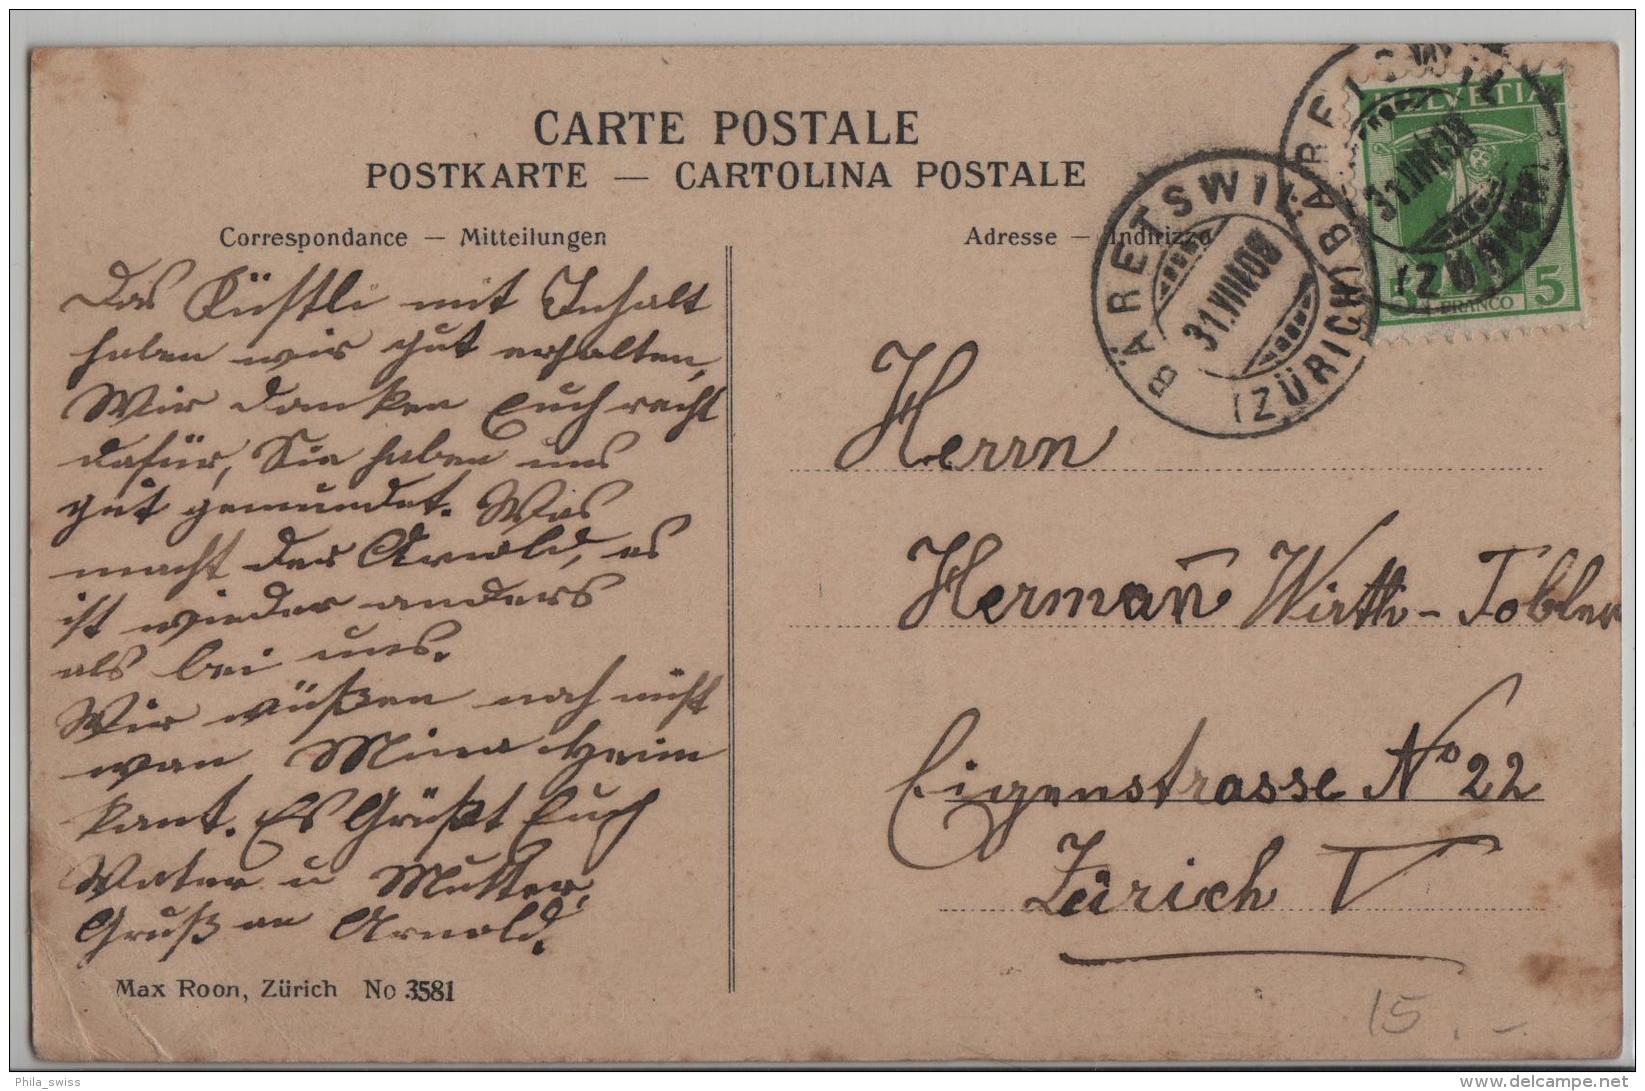 CARTE POSTALE
POSTKARTE — CARTOLINA POSTALE
Correspondance — Mitteilungen
Adresse — Indirizzo
Das Küstli mit Inhalt
haben wir gut erhalten,
Wir danken Euch recht
dafür, Sie haben uns
gut gemundet. Was
macht der Arnold, es
ist wieder anders
als bei uns.
Wir wüßen noch nicht
wan Mina Heim
kant. Es Grüßt Euch
Vater u Mutter,
Gruß an Arnold.
Max Roon, Zürich No 3581
HELVETIA
5 FRANCO 5
BÄRETSWIL
31.VIII.08
(ZÜRICH)
BÄRETSWIL
31.VIII.08
(ZÜRICH)
Herrn
Herman̄ Wirth-Tobler
Eigenstrasse No 22
Zürich V
15.-
Phila_swiss
www.delcampe.net